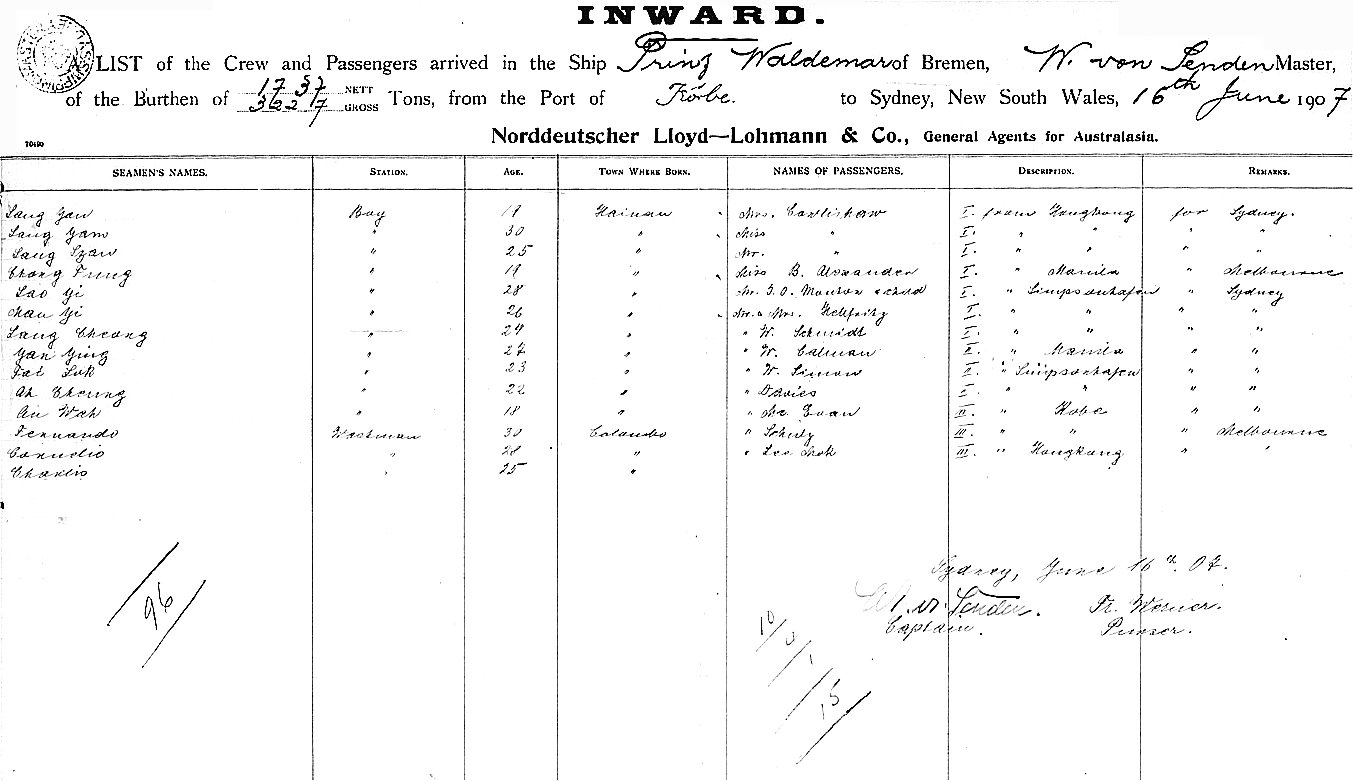 INWARD.
A LIST of the Crew and Passengers arrived in the Ship Prinz Waldemar of Bremen, W. von Senden Master,
of the Burthen of 1737 NETT 3227 GROSS Tons, from the Port of Kobe. to Sydney, New South Wales, 16th June 1907
Norddeutscher Lloyd—Lohmann & Co., General Agents for Australasia.
SEAMEN'S NAMES. STATION. AGE. TOWN WHERE BORN. NAMES OF PASSENGERS. DESCRIPTION. REMARKS.
Boy 19 Hainan Mrs. I. from Hongkong for Sydney.
Sang Yam " 30 " Miss " I. " " " "
" 25 " Mr. " I. " " " "
Chong Fung " 19 " Miss B. Alexander I. " Manila " Melbourne
Lao Yi " 28 " Mr. & child I. " Simpsonhafen " Sydney
Chau Yi " 26 " Mr. & Mrs. Hellfritz I. " " " "
Sang Cheong " 24 " " W. Schmidt I. " " " "
Yan Ying " 27 " " W. Calman II. " Manila " "
" 23 " " W. Simon II. " Simpsonhafen " "
Ah Cheung " 22 " " Davies " " " "
" 18 " " III. " Kobe " "
Fernando 30 Colombo " Schulz III. " " " Melbourne
Cornelio " 28 " " Lee III. " Hongkong " "
Charlis " 25 "
Sydney, June 16th. 07.
W. v. Senden. Fr. Werner.
Captain. Purser.
96
10
15